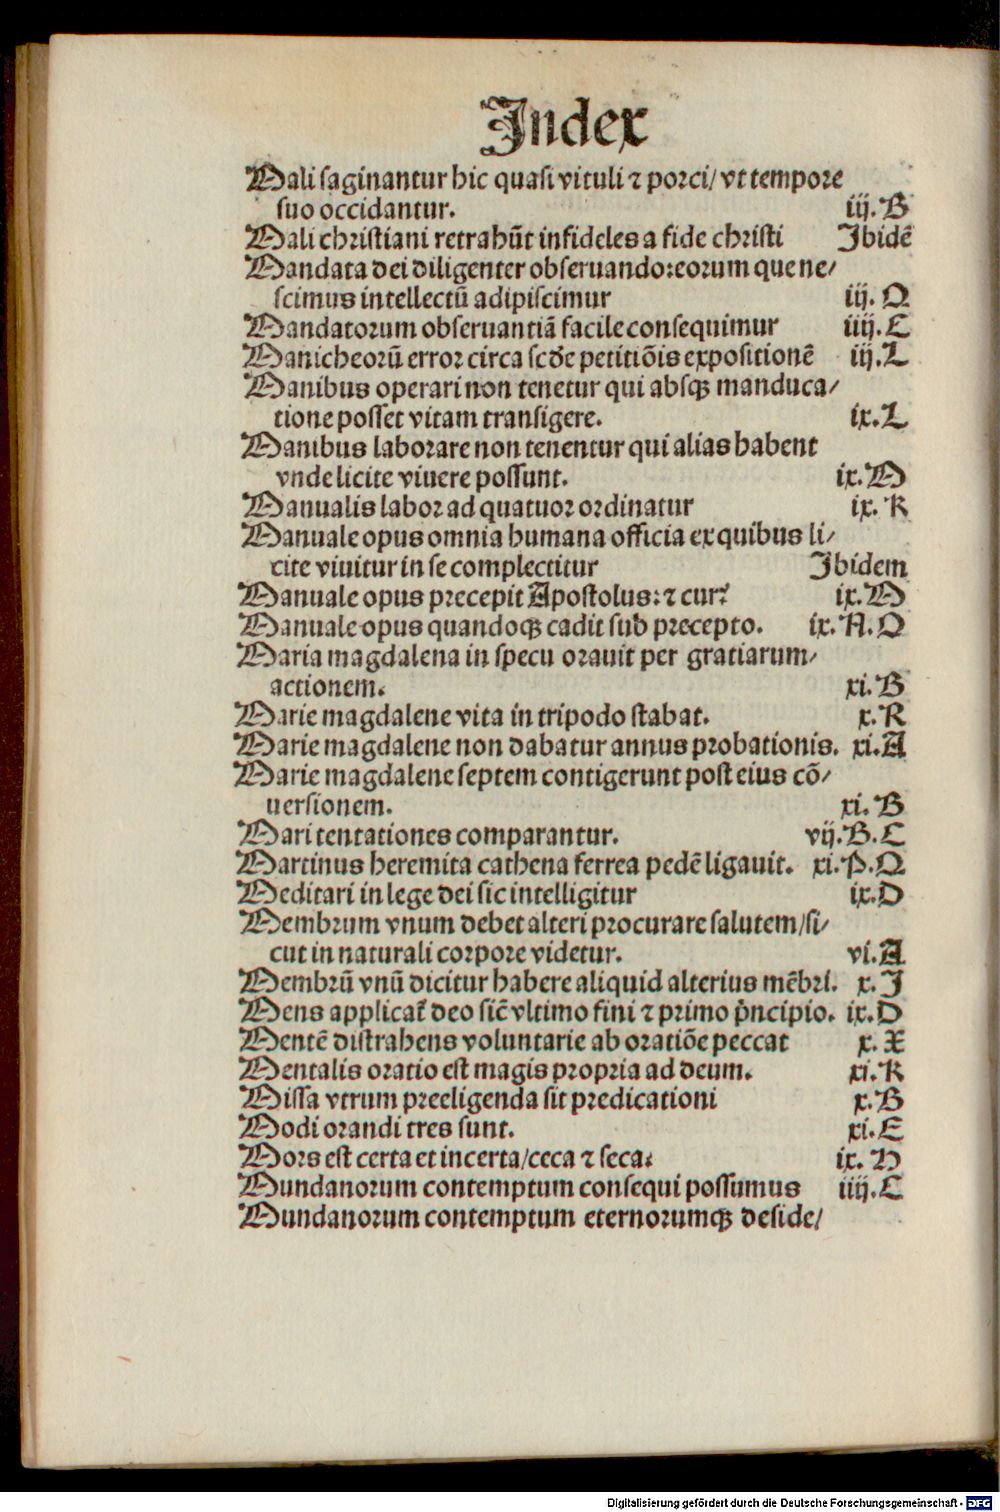 Index
Mali saginantur hic quasi vituli ⁊ porci/ vt tempore
suo occidantur. iij.B
Mali christiani retrahūt infideles a fide christi Ibidē
Mandata dei diligenter obseruando:eorum que ne/
scimus intellectū adipiscimur iij. O
Mandatorum obseruantiā facile consequimur iiij.C
Manicheorū error circa scđe petitiōis expositionē iij.L
Manibus operari non tenetur qui absqꝫ manduca/
tione posset vitam transigere. ix.L
Manibus laborare non tenentur qui alias habent
vnde licite viuere possunt. ix.M
Manualis labor ad quatuor ordinatur ix. K
Manuale opus omnia humana officia ex quibus li/
cite viuitur in se complectitur Ibidem
Manuale opus precepit Apostolus: ⁊ cur? ix.M
Manuale opus quandoqꝫ cadit sub precepto. ix.N.O
Maria magdalena in specu orauit per gratiarum/
actionem. xi.B
Marie magdalene vita in tripodo stabat. x.R
Marie magdalene non dabatur annus probationis. xi.A
Marie magdalene septem contigerunt post eius cō/
uersionem. xi.B
Mari tentationes comparantur. vij.B.C
Martinus heremita cathena ferrea pedē ligauit. xi.P.Q
Meditari in lege dei sic intelligitur ix.D
Membrum vnum debet alteri procurare salutem/si/
cut in naturali corpore videtur. vi.A
Membrū vnū dicitur habere aliquid alterius mēbri. x.I
Mens applicat̉ deo sic̄ vltimo fini ⁊ primo p̉ncipio. ix.D
Mentē distrahens voluntarie ab oratiōe peccat x.X
Mentalis oratio est magis propria ad deum. xi.K
Missa vtrum preeligenda sit predicationi x.B
Modi orandi tres sunt. xi.E
Mors est certa et incerta/ceca ⁊ seca. ix. H
Mundanorum contemptum consequi possumus iiij.C
Mundanorum contemptum eternorumqꝫ deside/
Digitalisierung gefördert durch die Deutsche Forschungsgemeinschaft - DFG